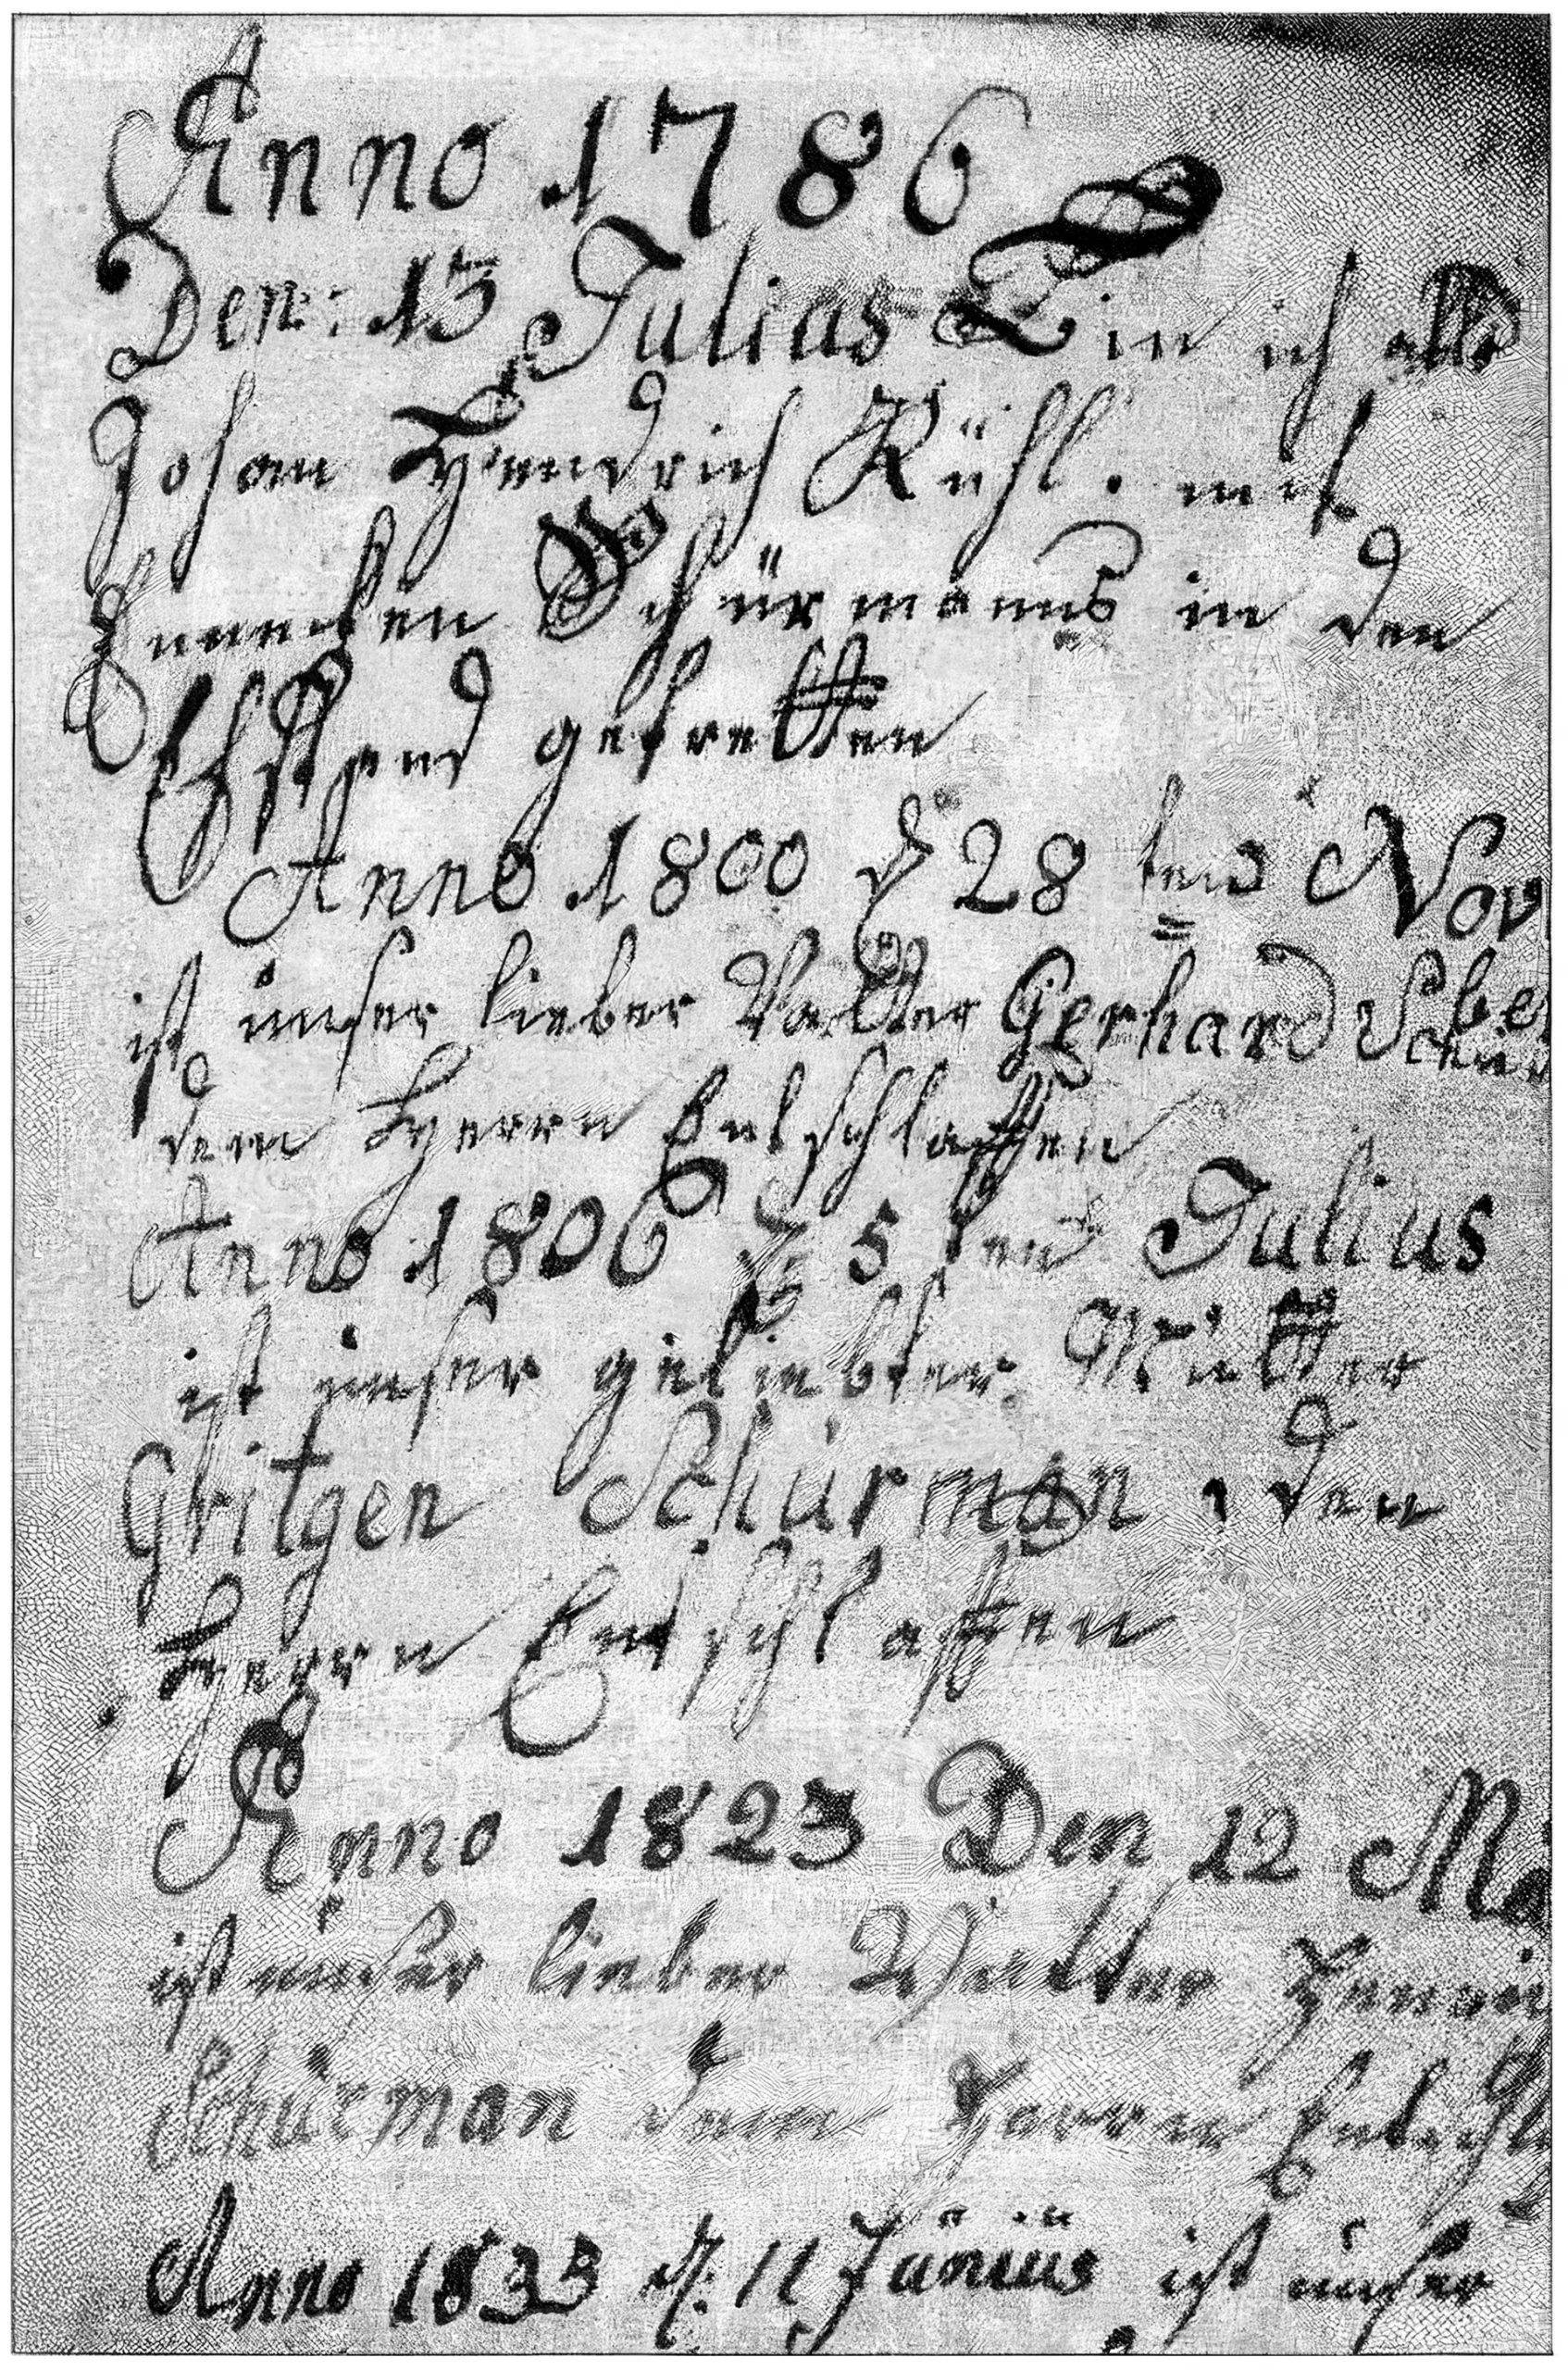 Anno 1786
Den: 13 Julius Bin ich alls
Johan Hendrich Kühl. mit
Schürmans in den
Ehstand getretten
Anno 1800 d 28 ten Nov
ist unser lieber Vatter Gerhard Schür
dem Herrn Entschlaffen
Anno 1806 d 5 ten Julius
ist unser geliebter Mutter
Gritgen Schürman, den
Herrn Entschlaffen
Anno 1823 Den 12 Ma
ist unser lieber
Schürman dem Herrn Entschl
Anno 1833 d. 11 Junius ist unser